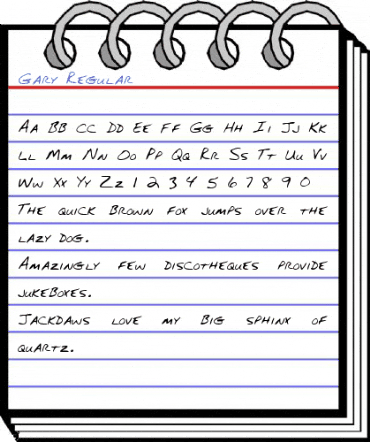 Gary Regular
Aa Bb Cc Dd Ee Ff Gg Hh Ii Jj Kk
Ll Mm Nn Oo Pp Qq Rr Ss Tt Uu Vv
Ww Xx Yy Zz 1 2 3 4 5 6 7 8 9 0
The quick brown fox jumps over the
lazy dog.
Amazingly few discotheques provide
jukeboxes.
Jackdaws love my big sphinx of
quartz.